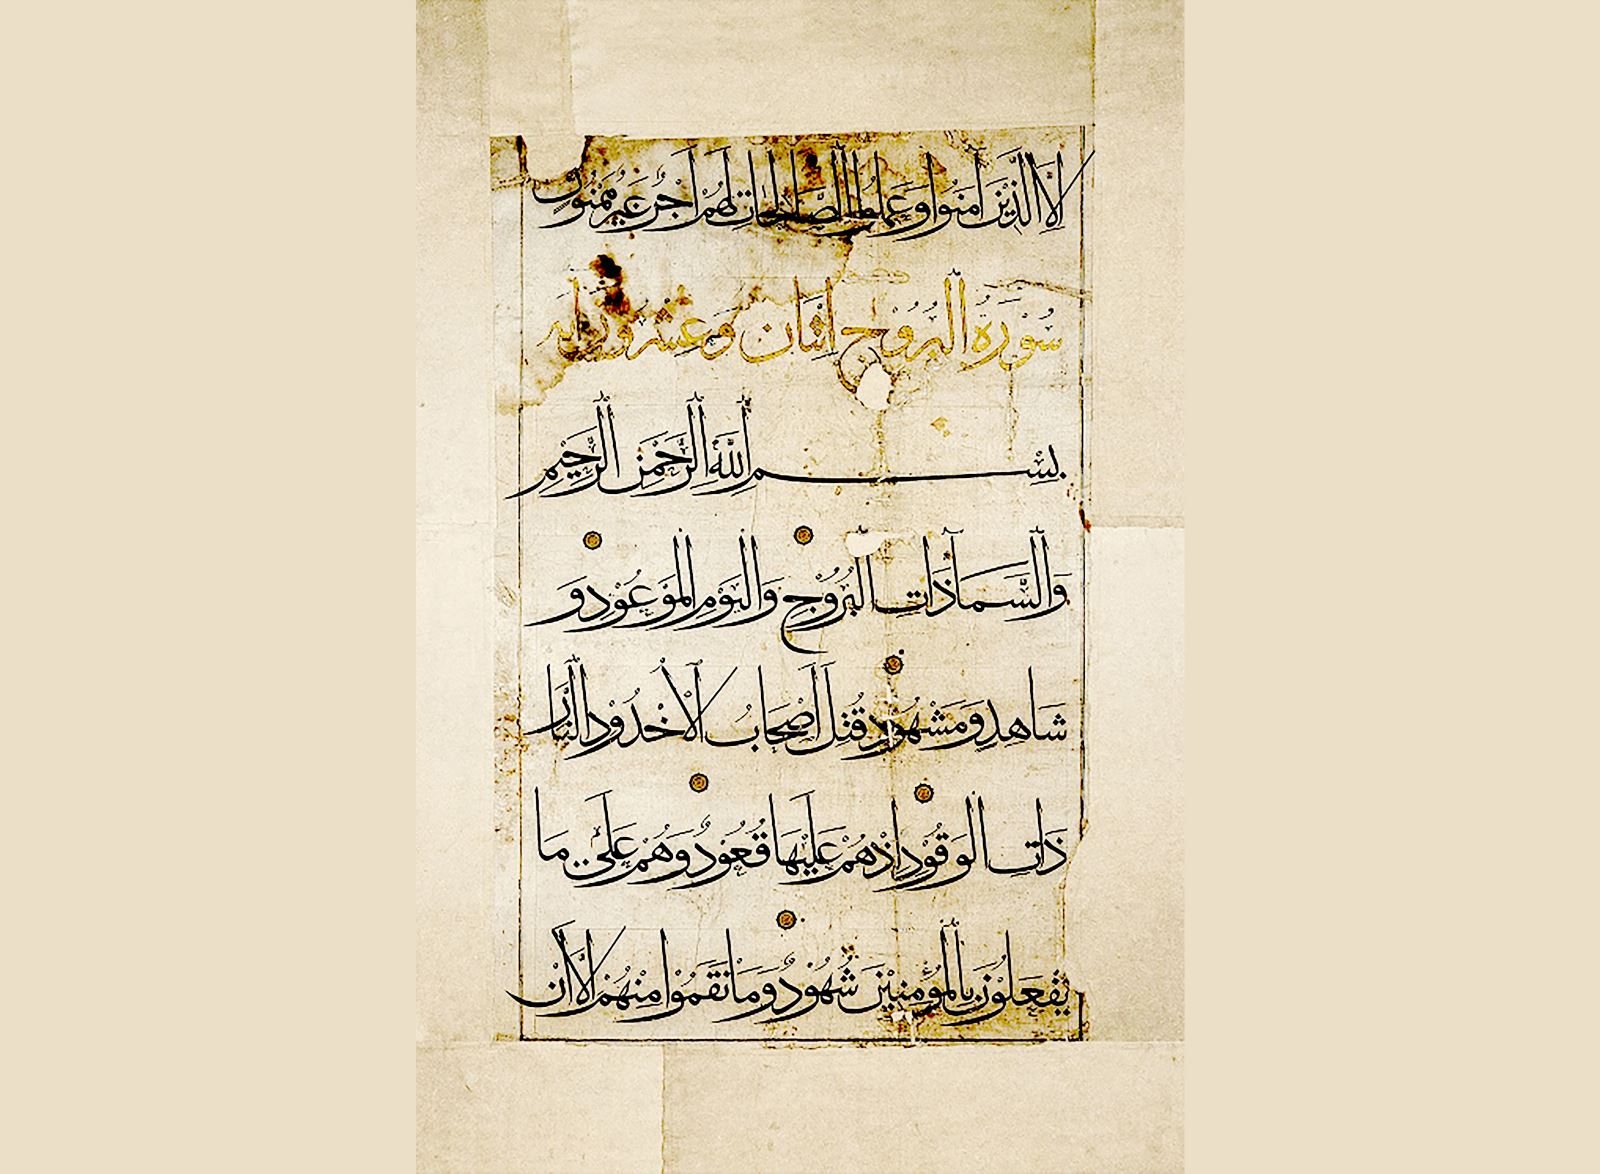 إِلَّا الَّذِينَ آمَنُوا وَعَمِلُوا الصَّالِحَاتِ لَهُمْ أَجْرٌ غَيْرُ مَمْنُونٍ
سُورَةُ الْبُرُوجِ اثنَان وَعِشْرُونَ آية
بِسْمِ اللَّهِ الرَّحْمَٰنِ الرَّحِيمِ
وَالسَّمَآ ذَاتِ الْبُرُوجِ وَالْيَوْمِ الْمَوْعُودِ وَ
شَاهِدٍ وَمَشْهُودٍ قُتِلَ أَصْحَابُ الْأُخْدُودِ النَّارِ
ذَاتِ الْوَقُودِ إِذْ هُمْ عَلَيْهَا قُعُودٌ وَهُمْ عَلَىٰ مَا
يَفْعَلُونَ بِالْمُؤْمِنِينَ شُهُودٌ وَمَا نَقَمُوا مِنْهُمْ إِلَّا أَنْ